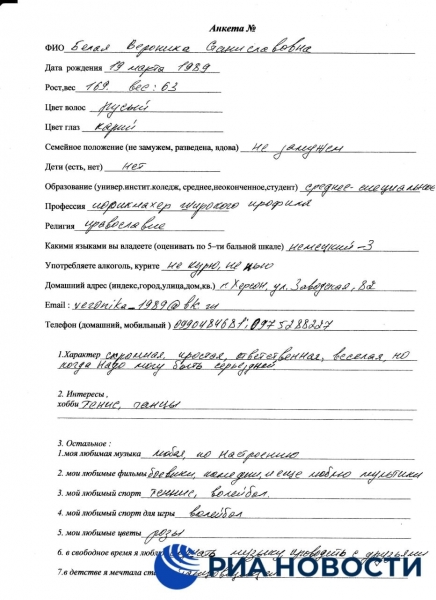 Анкета №
ФИО Белая Вероника Станиславовна
Дата рождения 19 марта 1989
Рост,вес 169. вес: 63
Цвет волос русый
Цвет глаз карий
Семейное положение (не замужем, разведена, вдова) не замужем
Дети (есть, нет) нет
Образование (универ.инстит.коледж, среднее,неоконченное,студент) средне-специальное
Профессия парикмахер широкого профиля
Религия православие
Какими языками вы владеете (оценивать по 5–ти бальной шкале) немецкий -3
Употребляете алкоголь, курите не курю, не пью
Домашний адрес (индекс,город,улица,дом,кв.) г. Херсон, ул. Заводская, 82
Email : veronika_1989@bk.ru
Телефон (домашний, мобильный )
1.Характер скромная, простая, ответственная, веселая, но
когда надо могу быть серьезней
2. Интересы ,
хобби тенис, танцы
3. Остальное :
1.моя любимая музыка любая, по настроению
2. мои любимые фильмы боевики, комедии, и еще люблю мультики
3. мой любимый спорт теннис, волейбол.
4. мой любимый спорт для игры волейбол
5. мои любимые цветы розы
6. в свободное время я люблю музыку, проводить с друзьями
7.в детстве я мечтала ст
РИА НОВОСТИ